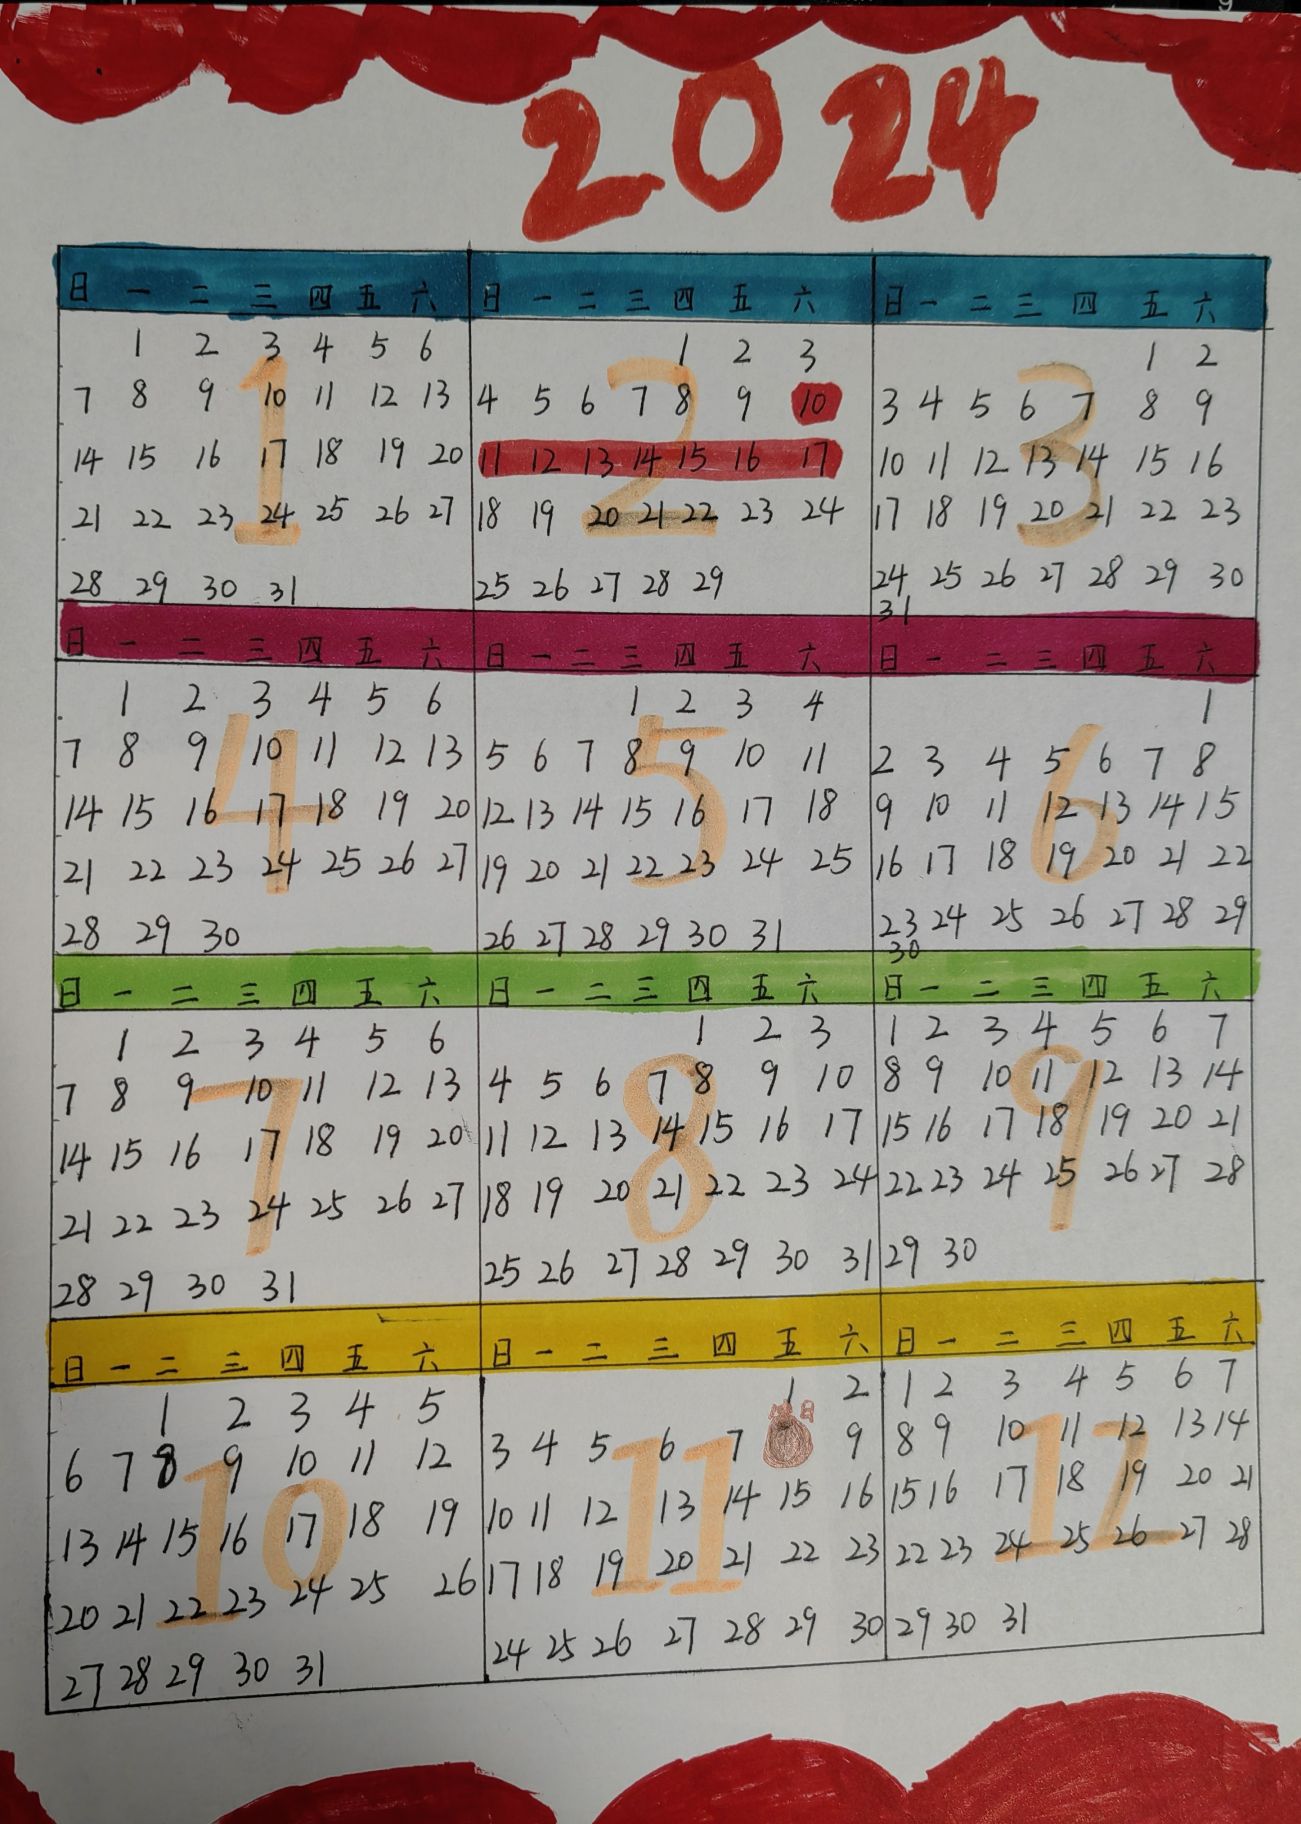 2024
日 一 二 三 四 五 六
1
1 2 3 4 5 6
7 8 9 10 11 12 13
14 15 16 17 18 19 20
21 22 23 24 25 26 27
28 29 30 31
日 一 二 三 四 五 六
2
1 2 3
4 5 6 7 8 9 10
11 12 13 14 15 16 17
18 19 20 21 22 23 24
25 26 27 28 29
日 一 二 三 四 五 六
3
1 2
3 4 5 6 7 8 9
10 11 12 13 14 15 16
17 18 19 20 21 22 23
24 25 26 27 28 29 30
31
日 一 二 三 四 五 六
4
1 2 3 4 5 6
7 8 9 10 11 12 13
14 15 16 17 18 19 20
21 22 23 24 25 26 27
28 29 30
日 一 二 三 四 五 六
5
1 2 3 4
5 6 7 8 9 10 11
12 13 14 15 16 17 18
19 20 21 22 23 24 25
26 27 28 29 30 31
日 一 二 三 四 五 六
6
1
2 3 4 5 6 7 8
9 10 11 12 13 14 15
16 17 18 19 20 21 22
23 24 25 26 27 28 29
30
日 一 二 三 四 五 六
7
1 2 3 4 5 6
7 8 9 10 11 12 13
14 15 16 17 18 19 20
21 22 23 24 25 26 27
28 29 30 31
日 一 二 三 四 五 六
8
1 2 3
4 5 6 7 8 9 10
11 12 13 14 15 16 17
18 19 20 21 22 23 24
25 26 27 28 29 30 31
日 一 二 三 四 五 六
9
1 2 3 4 5 6 7
8 9 10 11 12 13 14
15 16 17 18 19 20 21
22 23 24 25 26 27 28
29 30
日 一 二 三 四 五 六
10
1 2 3 4 5
6 7 8 9 10 11 12
13 14 15 16 17 18 19
20 21 22 23 24 25 26
27 28 29 30 31
日 一 二 三 四 五 六
11
1 2
日
3 4 5 6 7 9
10 11 12 13 14 15 16
17 18 19 20 21 22 23
24 25 26 27 28 29 30
日 一 二 三 四 五 六
12
1 2 3 4 5 6 7
8 9 10 11 12 13 14
15 16 17 18 19 20 21
22 23 24 25 26 27 28
29 30 31